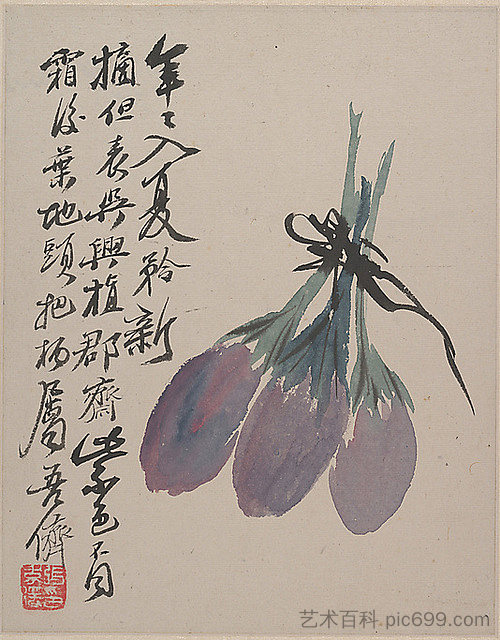 年〻入夏矜新
摘但表與興植郡齋紫色
霜後葉地頭把柄屬吾儕
艺术百科 pic699.com